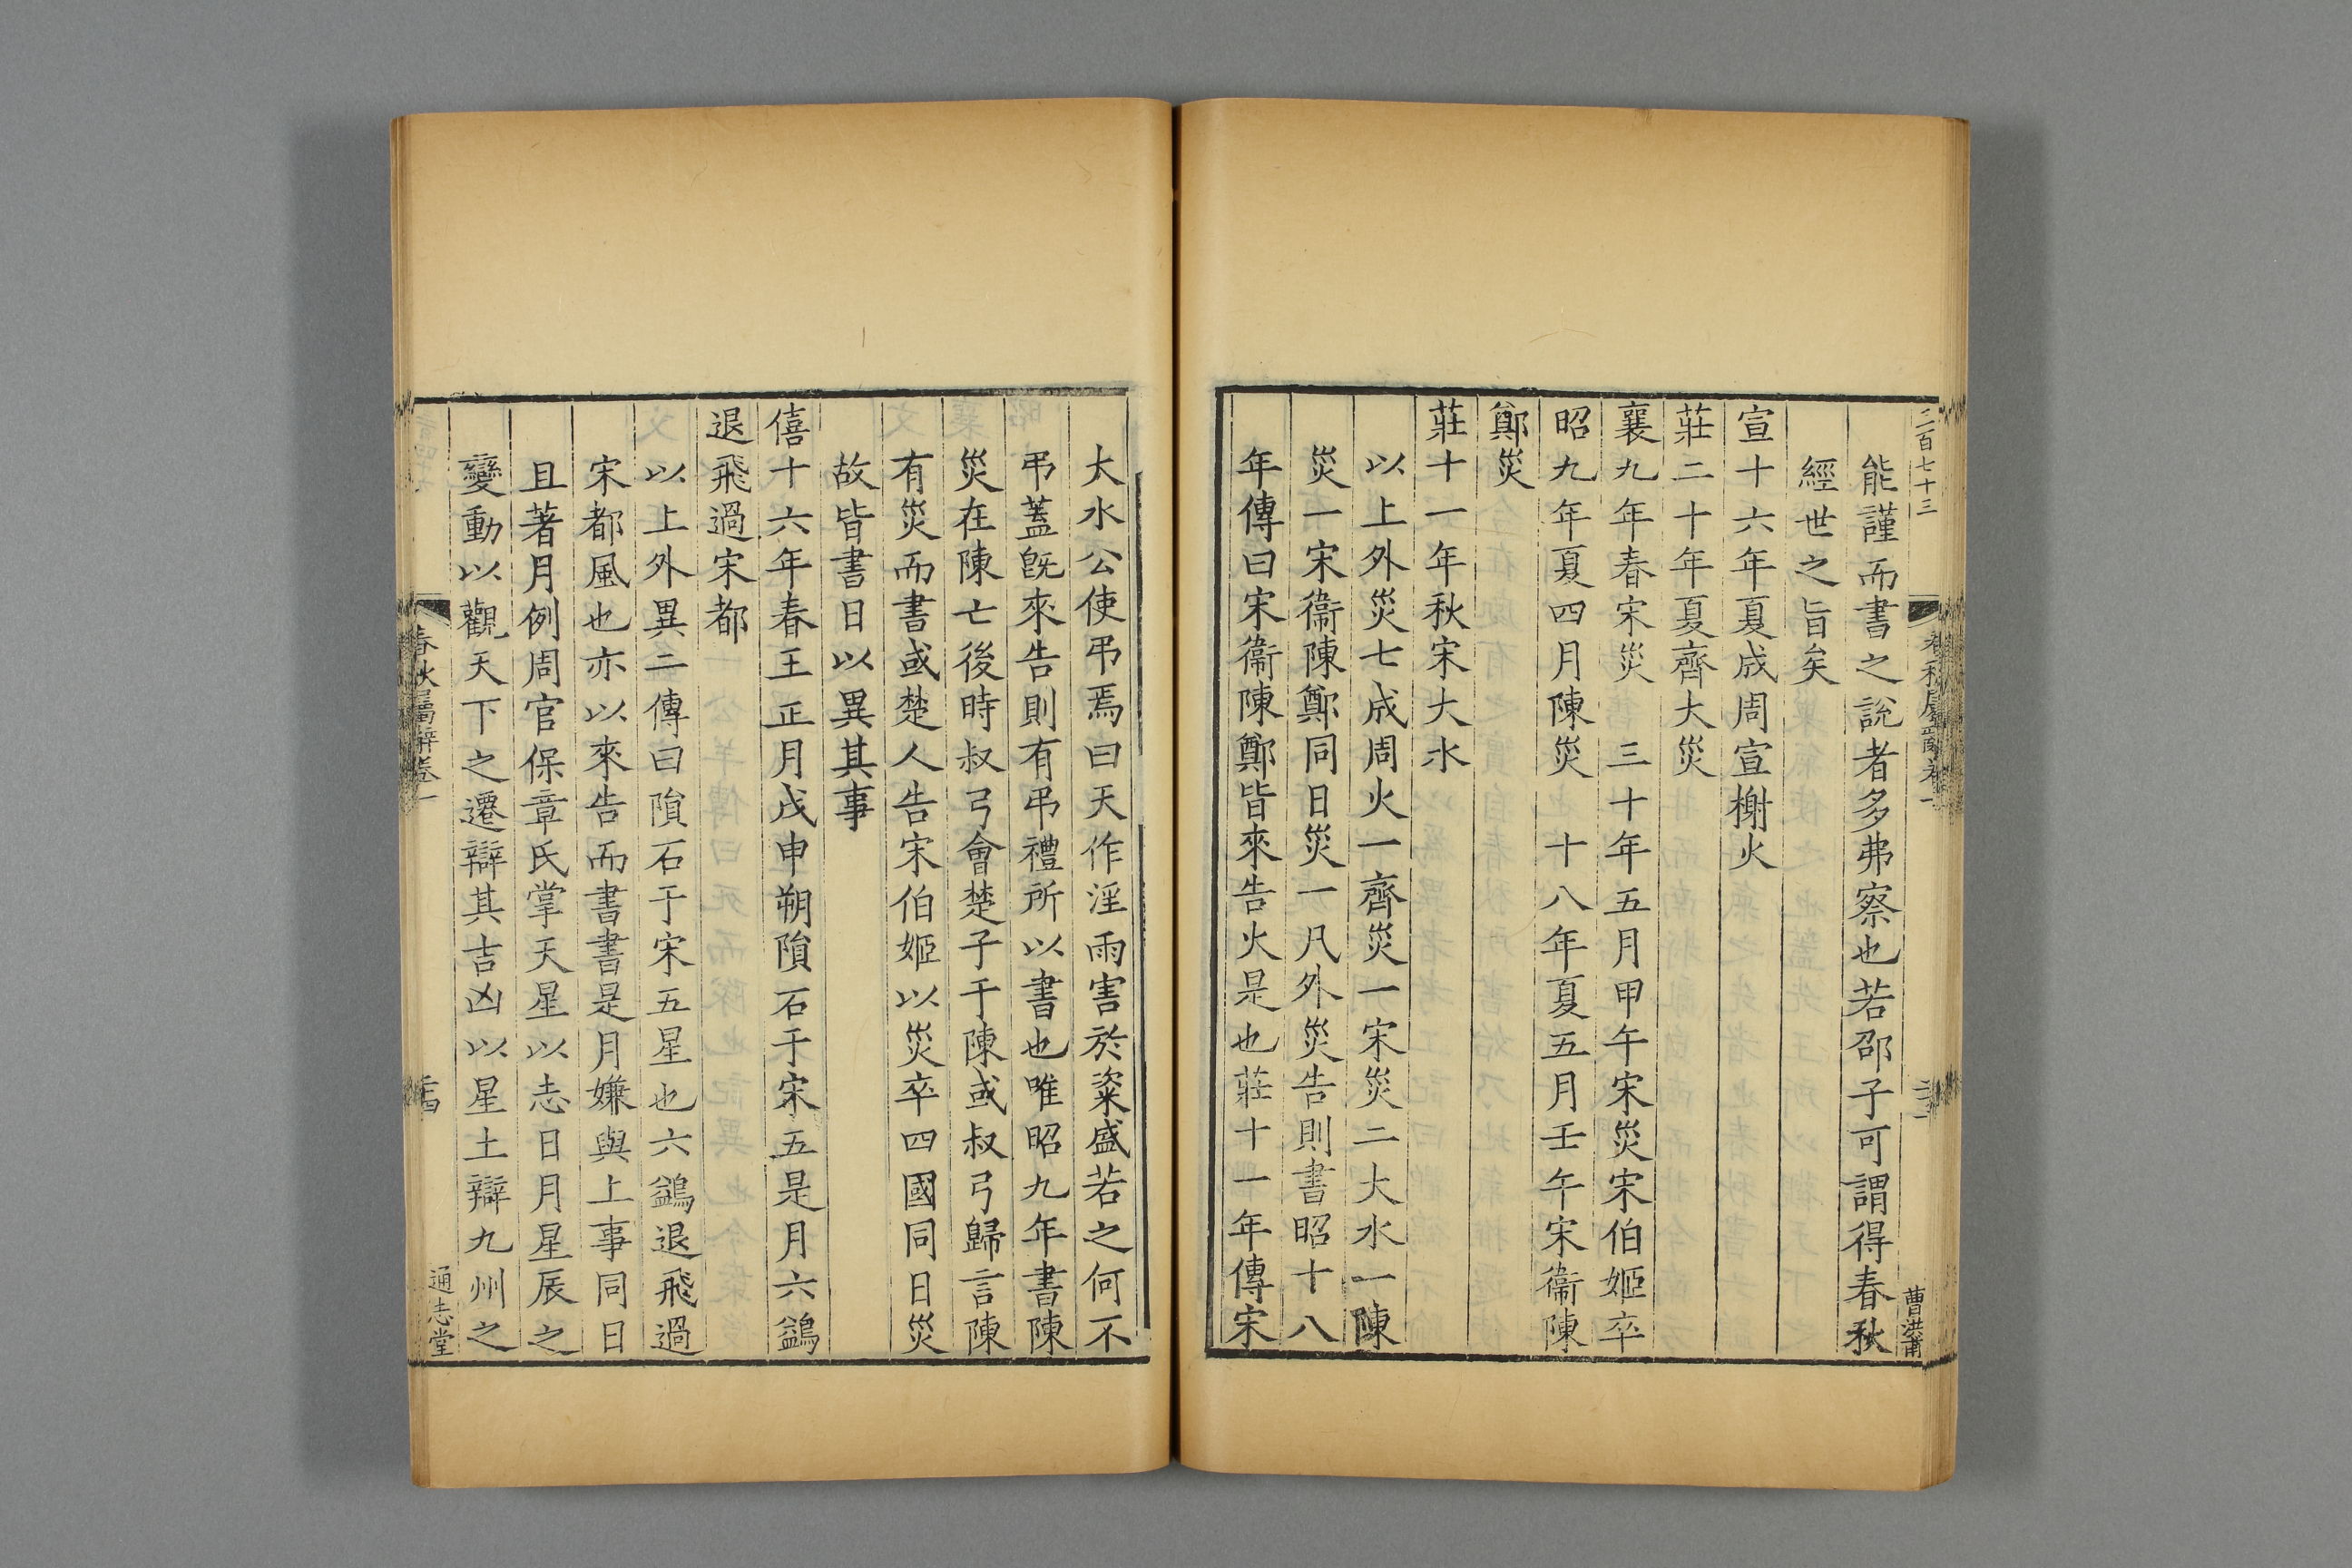 二百七十三
春秋屬辭卷一
曹洪甫
能謹而書之說者多弗察也若邵子可謂得春秋
經世之旨矣
宣十六年夏成周宣榭火
莊二十年夏齊大災
襄九年春宋災 三十年五月甲午宋災宋伯姬卒
昭九年夏四月陳災 十八年夏五月壬午宋衞陳
鄭災
莊十一年秋宋大水
以上外災七成周火一齊災一宋災二大水一陳
災一宋衞陳鄭同日災一凡外災告則書昭十八
年傳曰宋衞陳鄭皆來告火是也莊十一年傳宋
大水公使弔焉曰天作淫雨害於粢盛若之何不
弔蓋旣來告則有弔禮所以書也唯昭九年書陳
災在陳亡後時叔弓會楚子于陳或叔弓歸言陳
有災而書或楚人告宋伯姬以災卒四國同日災
故皆書日以異其事
僖十六年春王正月戊申朔隕石于宋五是月六鷁
退飛過宋都
以上外異二傳曰隕石于宋五星也六鷁退飛過
宋都風也亦以來告而書書是月嫌與上事同日
且著月例周官保章氏掌天星以志日月星辰之
變動以觀天下之遷辯其吉凶以星土辯九州之
春秋屬辭卷一
通志堂